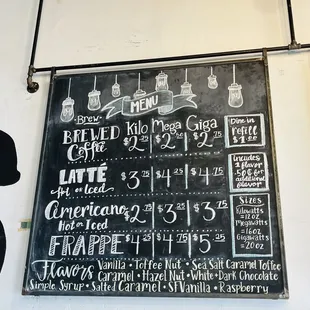 MENU
Brew
Kilo Mega Giga
BREWED Coffee $2 $2 $2
Dine in Refill $1.00
LATTÉ Hot or Iced $3.75 $4.25 $4.75
Includes 1 flavor
.50¢ for additional flavor
Americano Hot or Iced $2 $3 $3.75
Sizes
Kilowatts = 12oz
Megawatts = 16oz
Gigawatts = 20oz
FRAPPE $4.25 $4.75 $5.25
Flavors Vanilla • Toffee Nut • Sea Salt Caramel Toffee
Caramel • Hazel Nut • White • Dark Chocolate
Simple Syrup • Salted Caramel • SF Vanilla • Raspberry